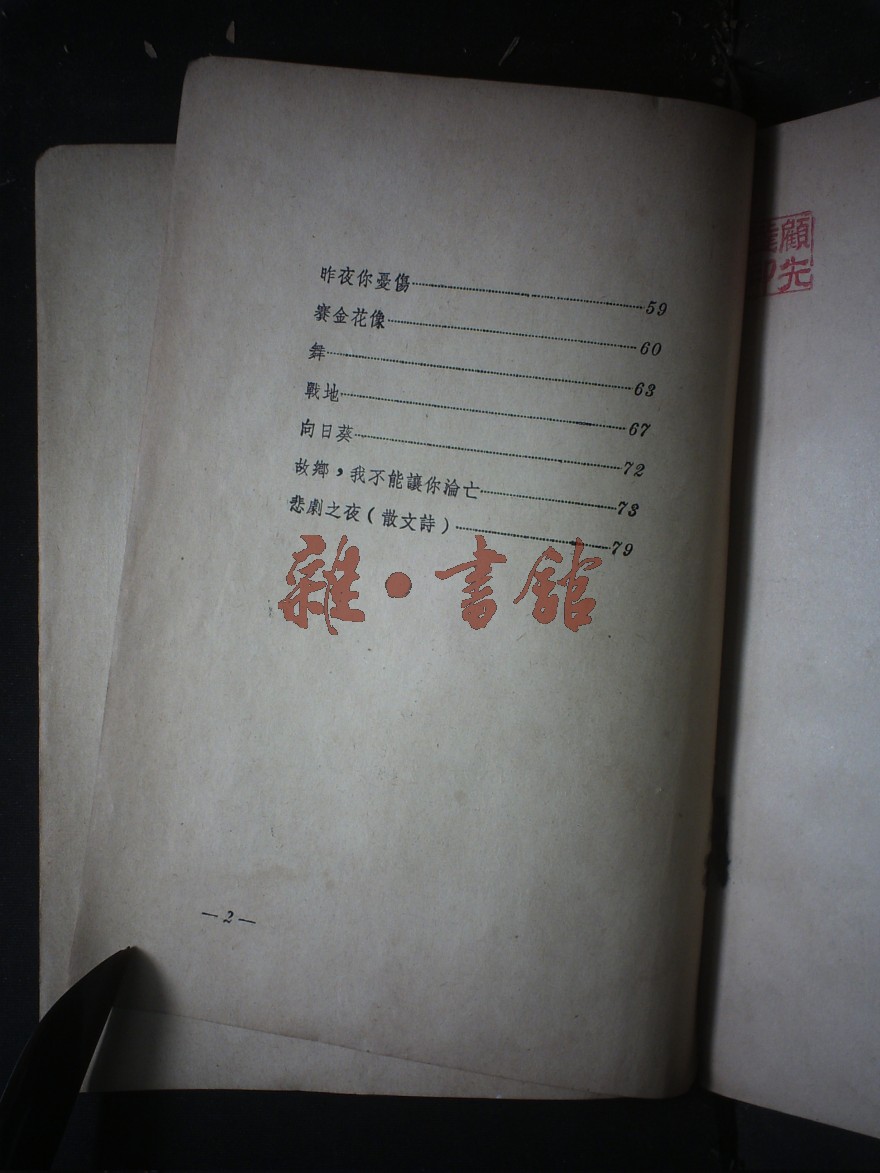 昨夜你憂傷 59
賽金花像 60
舞 63
戰地 67
向日葵 72
故鄉，我不能讓你淪亡 73
悲劇之夜（散文詩） 79
雜·書館
—2—
顧
先